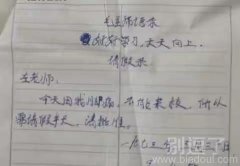 毛主席语录
好好学习，天天向上。
请假条
老师：
今天因我肚痛，不能来校，所以
要请假半天，请批准。
一九七三年
www.biadoul.com